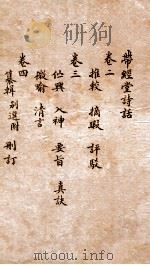 帶經堂詩話
卷二
推較 摘瑕 評駁
卷三
佇興 入神 要旨 真訣
微喻 清言
卷四
纂輯 別選附 刪訂